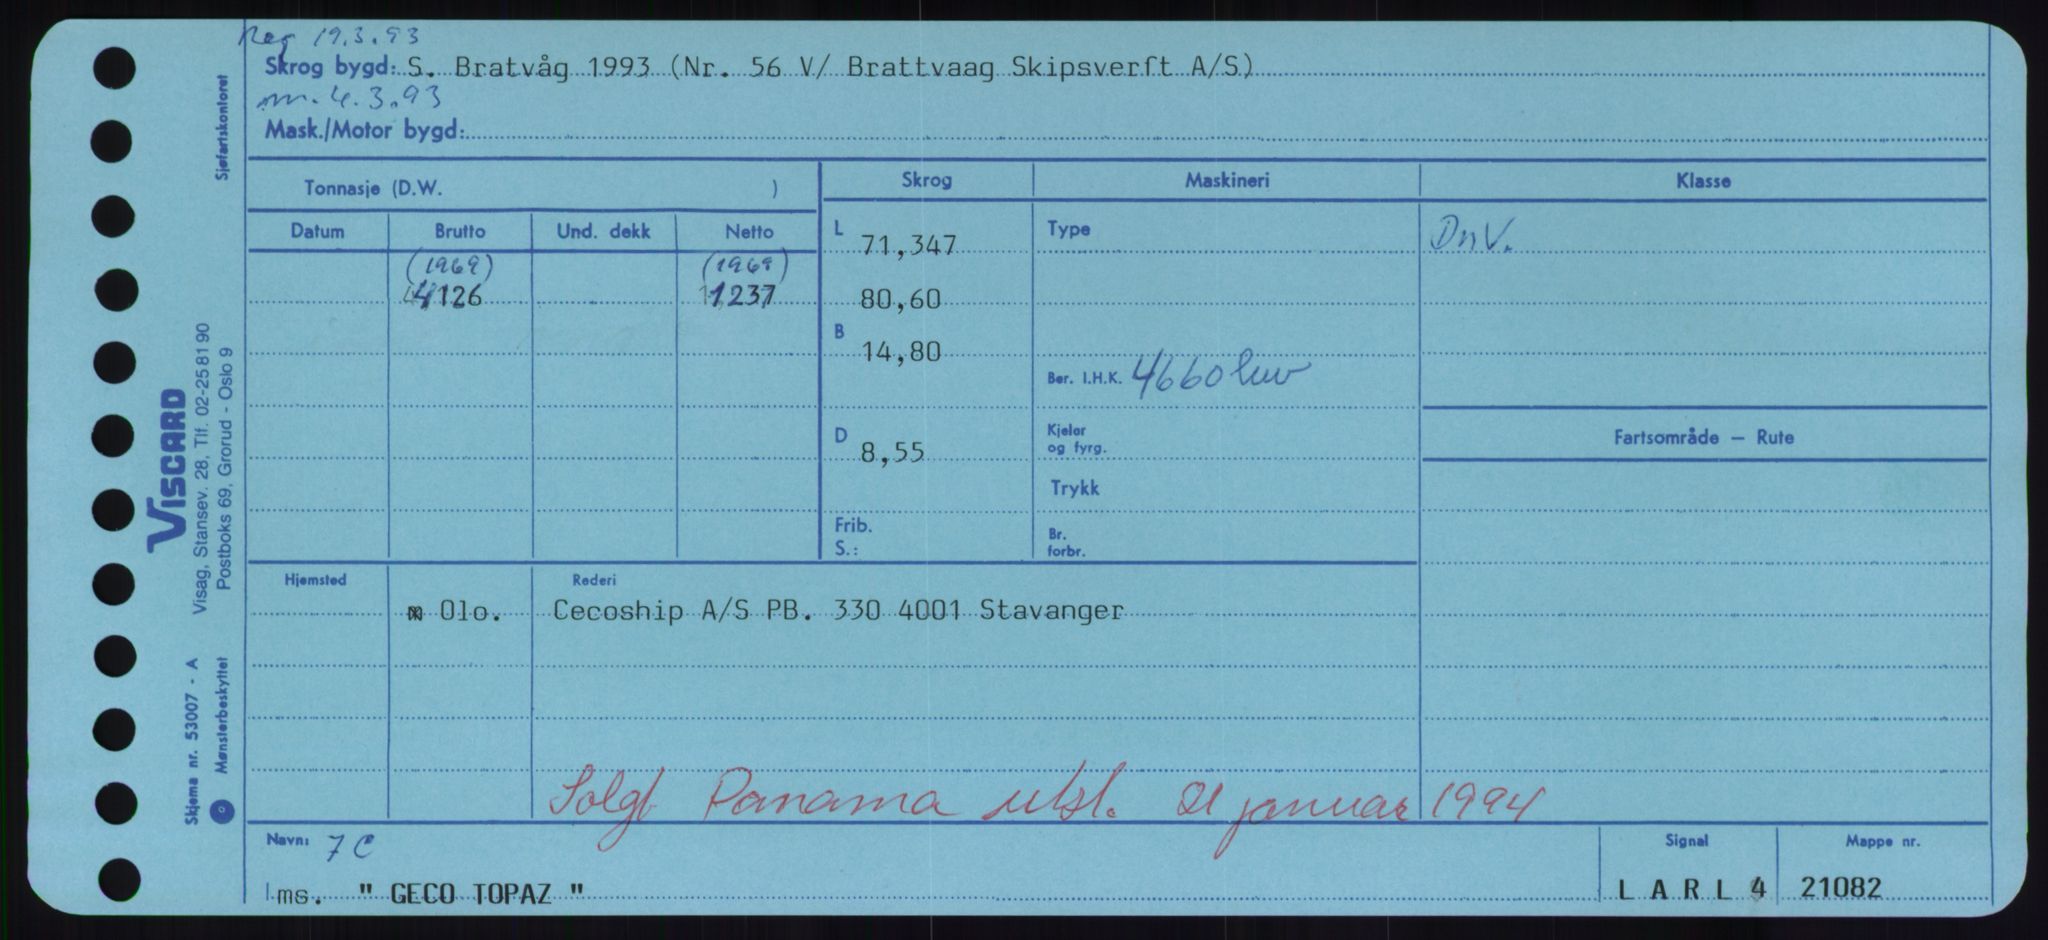 Reg 19.3.93
Skrog bygd: S. Bratvåg 1993 (Nr. 56 V/ Brattvaag Skipsverft A/S)
m. 4.3.93
Mask./Motor bygd:
Tonnasje (D.W. )
Skrog Maskineri Klasse
Datum Brutto Und. dekk Netto
L 71,347
Type
DnV.
(1969) (1969)
4126 1237
80,60
B
14,80
Ber. I.H.K. 4660
Kjeler
og fyrg.
Fartsområde — Rute
D
8,55
Trykk
Frib.
S.:
Br.
forbr.
Hjemsted Rederi
Olo. Cecoship A/S PB. 330 4001 Stavanger
Solgt Panama utsl. 21 januar 1994
Navn: 7C
Signal Mappe nr.
ms. " GECO TOPAZ " LARL 4 21082
Sjøfartskontoret
VISCARD
Visag, Stansev. 28, Tlf. 02-25 81 90
Postboks 69, Grorud - Oslo 9
Skjema nr. 53007 - A
Mønsterbeskyttet